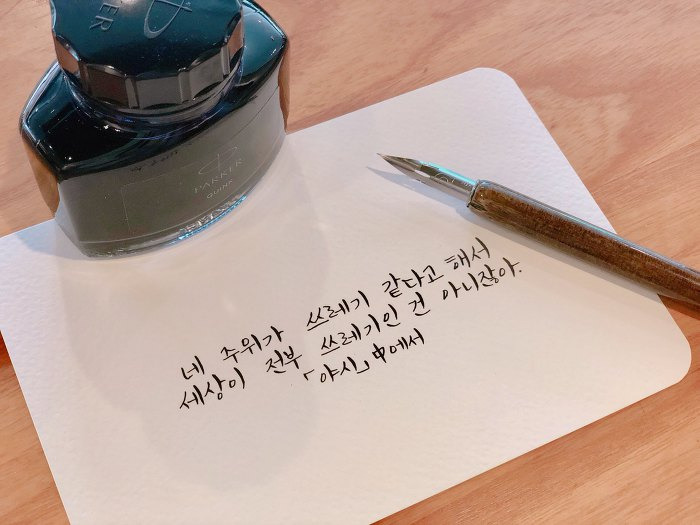 PARKER
QUINK
네 주위가 쓰레기 같다고 해서
세상이 전부 쓰레기인 건 아니잖아.
「야시」中에서